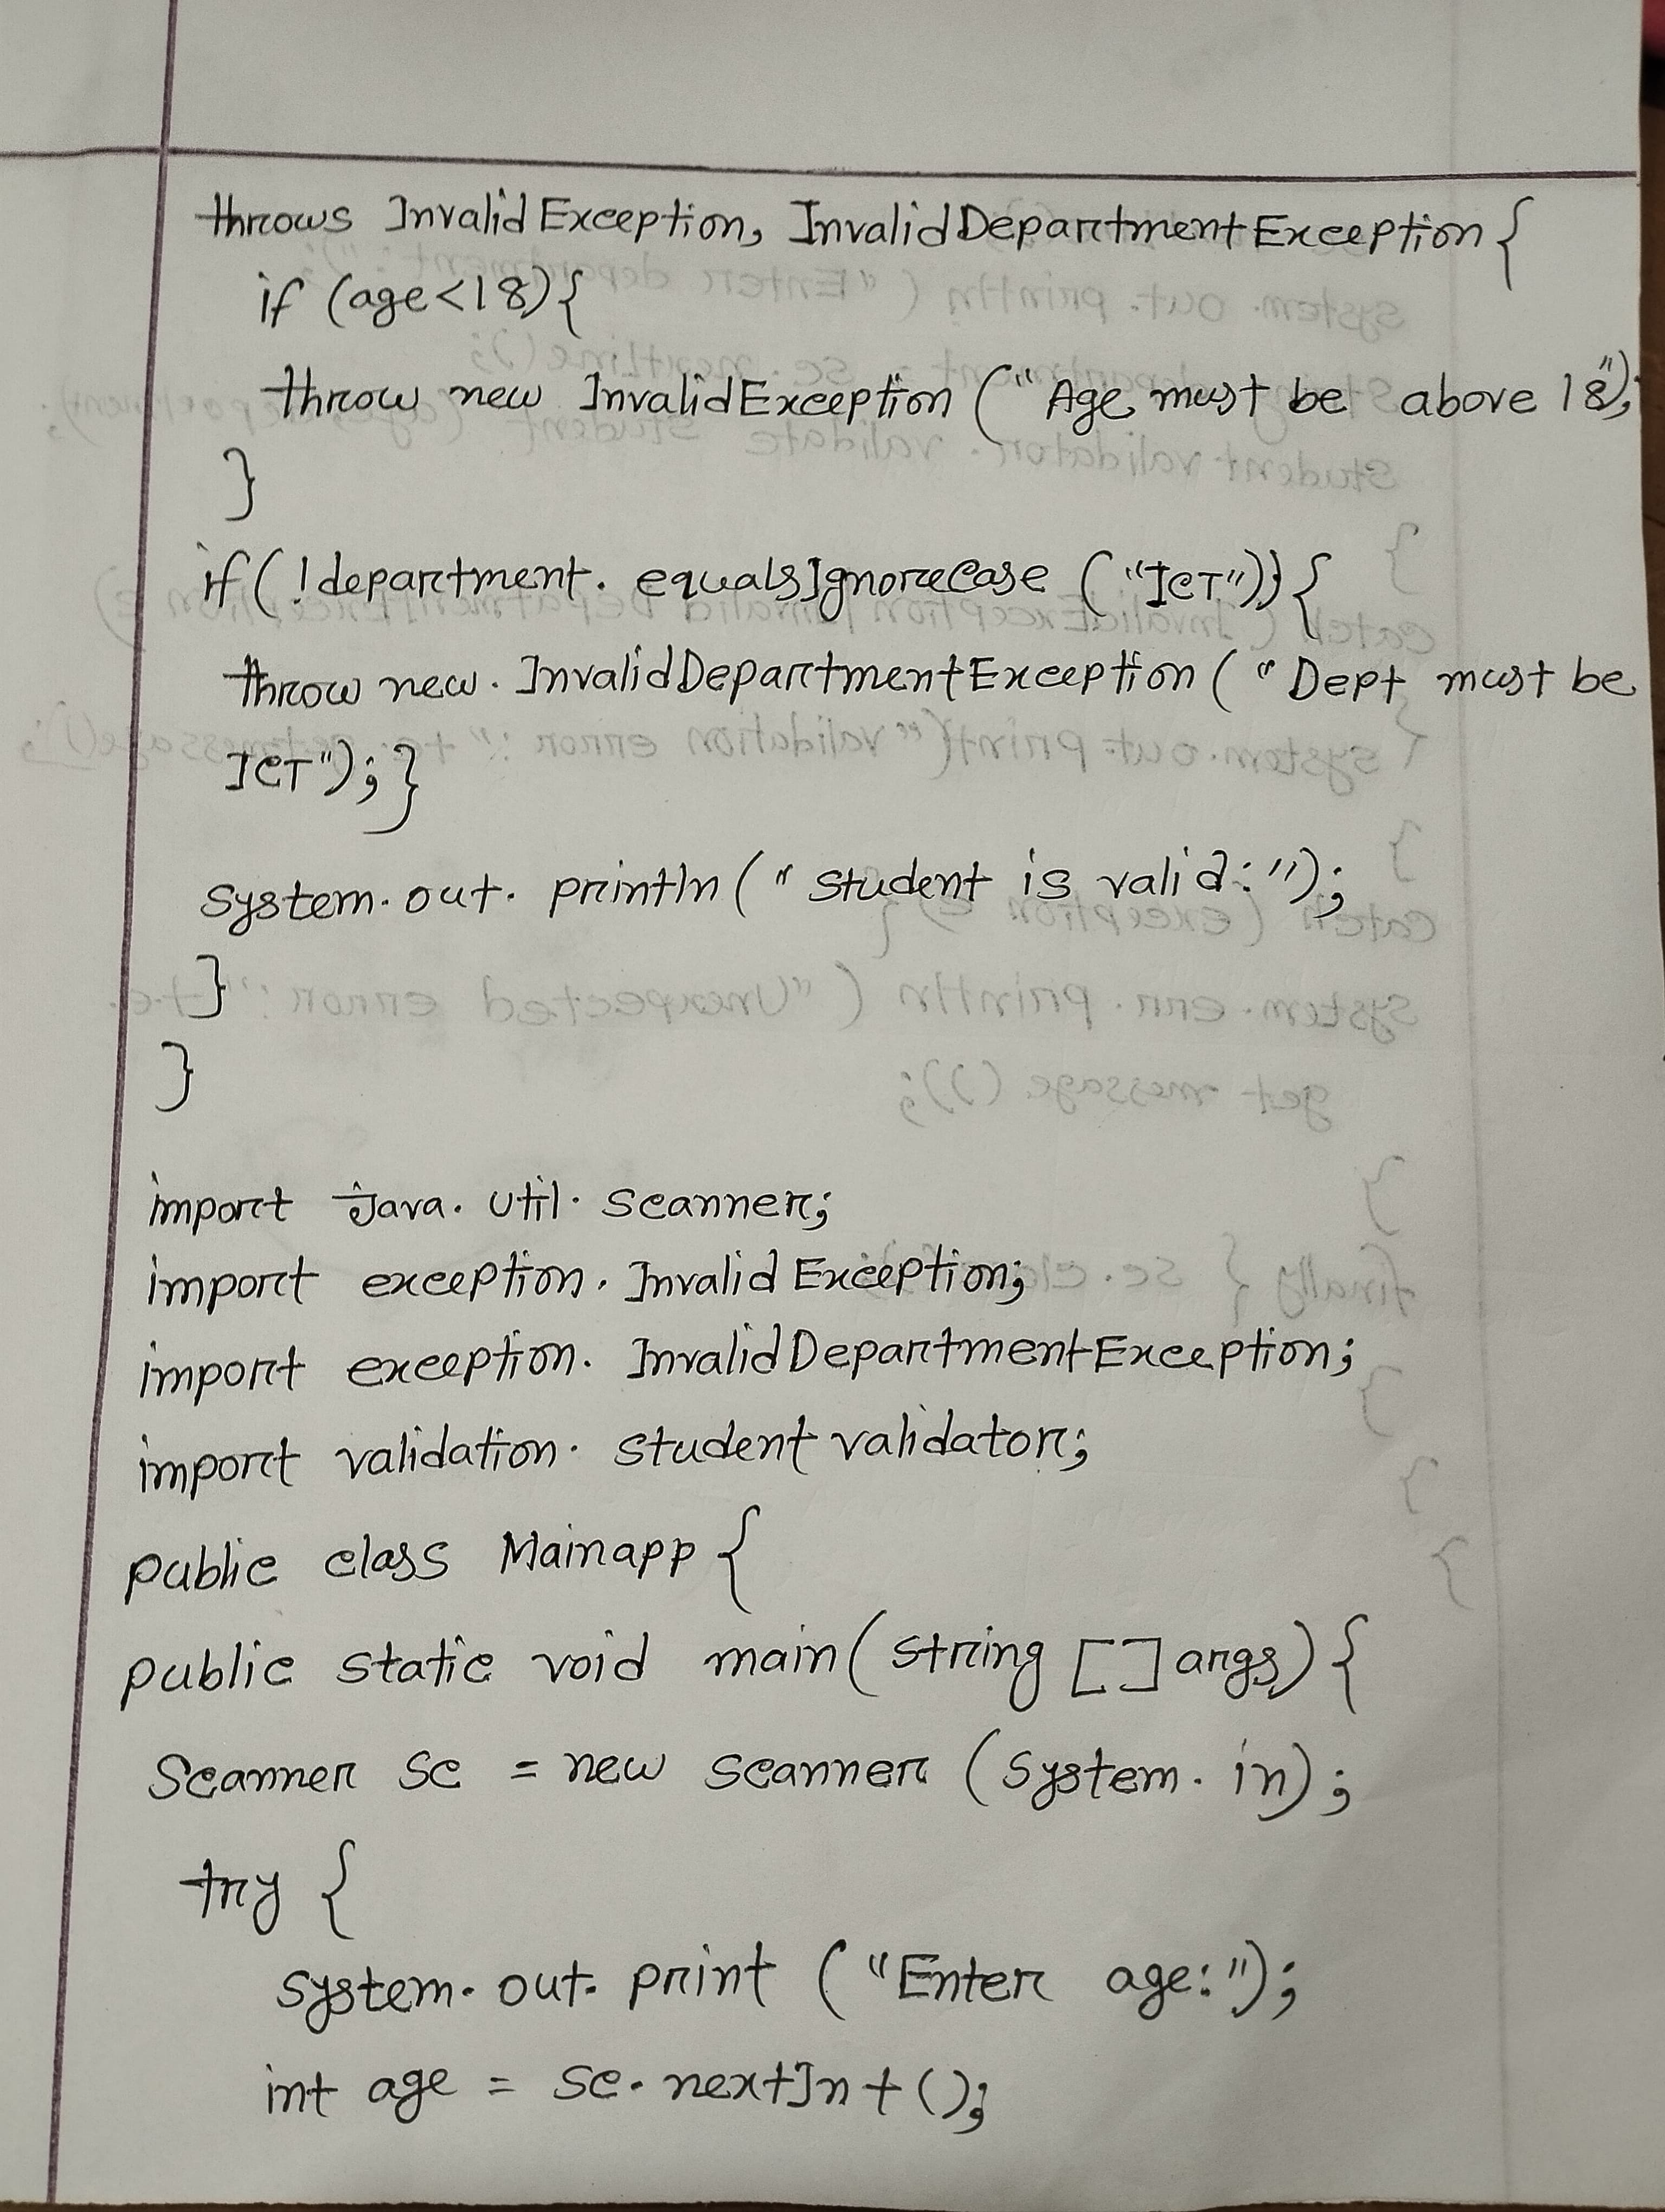 throws InvalidException, InvalidDepartmentException {
if (age<18){
throw new InvalidException ("Age must be above 18");
}
if(!department. equalsIgnoreCase ("ICT")){
throw new. InvalidDepartmentException ("Dept must be
ICT"); }
system.out. println ("student is valid:");
}
}
import java. util. scanner;
import exception. InvalidException;
import exception. InvalidDepartmentException;
import validation. student validator;
public class Mainapp {
public static void main(string [] args){
Scanner sc = new scanner (system. in);
try {
system. out. print ("Enter age:");
int age = sc. nextInt ();